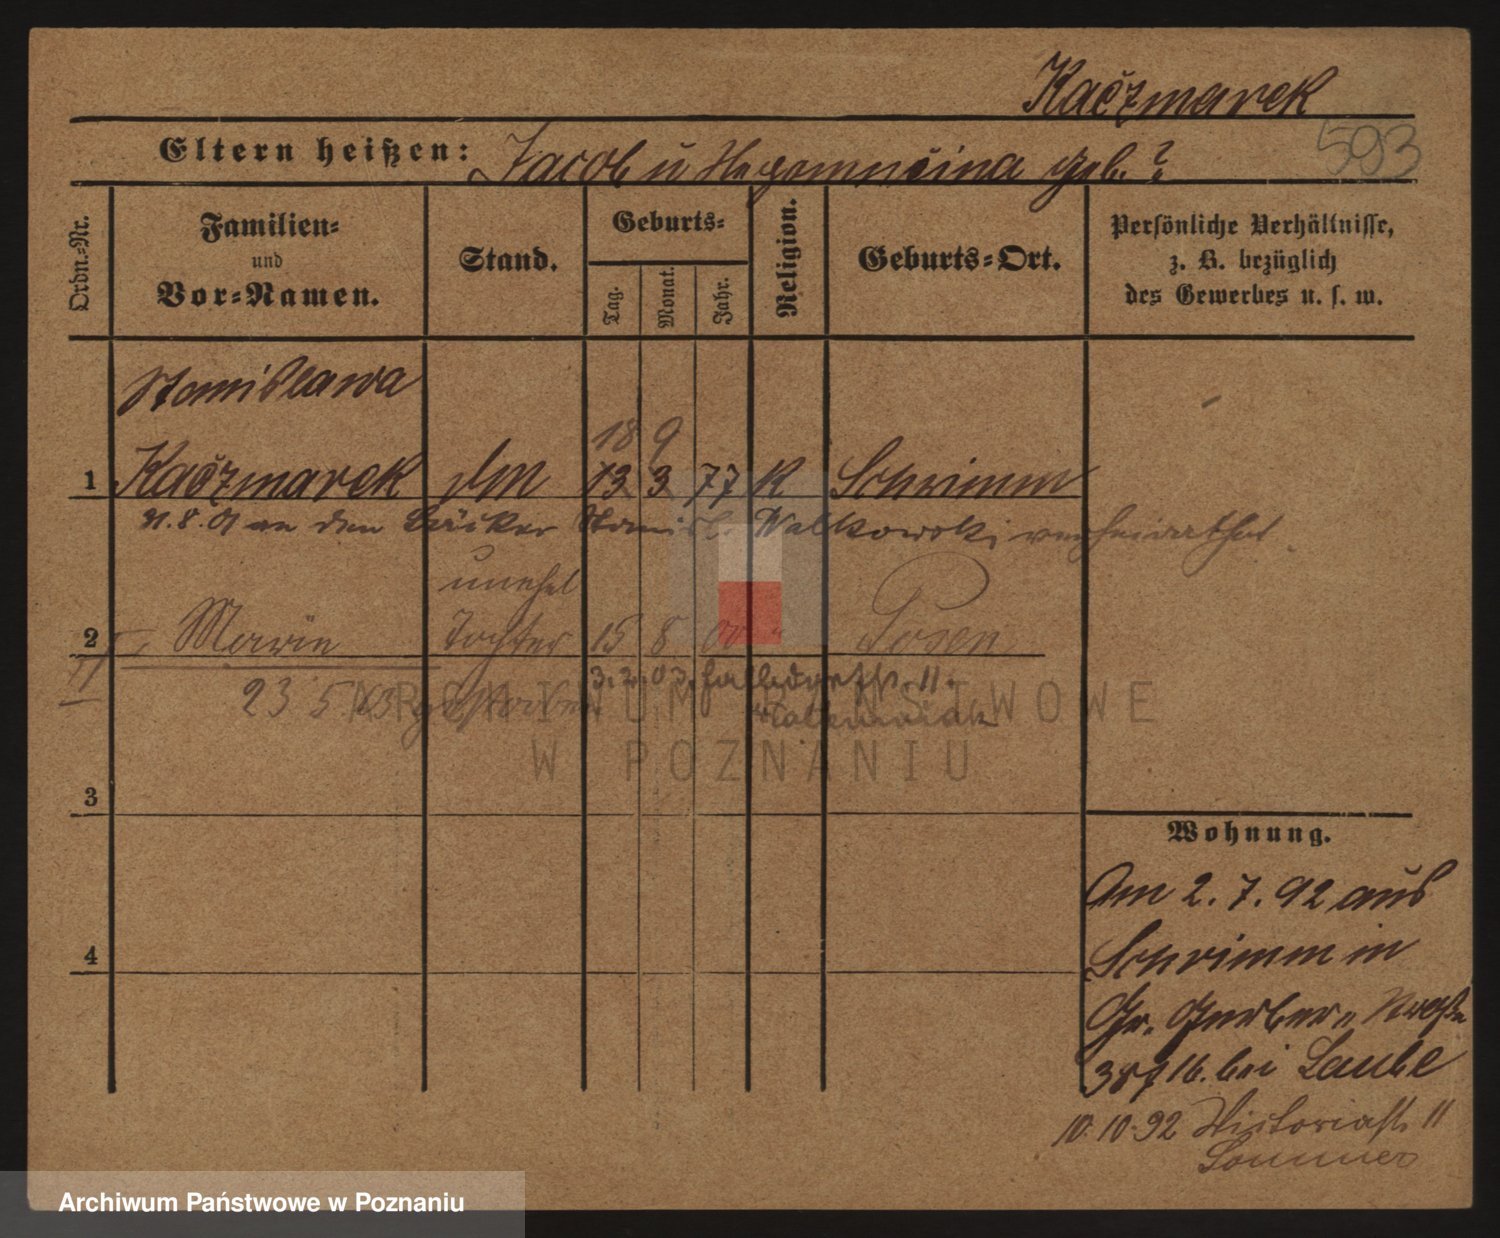 Kaczmarek
593
Eltern heißen: Jacob u Nepomucina geb. ?
Ordn.-Nr.
Familien- und Vor-Namen.
Stand.
Geburts-
Tag. Monat. Jahr.
Religion.
Geburts-Ort.
Persönliche Verhältnisse, z. B. bezüglich des Gewerbes u. s. w.
Stanislawa
18 9
1 Kaczmarek dM 13 3 77 K Schrimm
21.8.01 an den Bäcker Stanisl. Walkowski verheirathet
unehel
2 Marie Tochter 15 8 00 Posen
II
3.2.03. Halbdorfstr. 11.
23 5 03 gestorben
3
Wohnung.
Am 2. 7. 92 aus
4
Schrimm in
Gr. Gerber-
38/16. bei Laube
10.10.92 Victoriastr. 11
Sommer
ARCHIWUM PAŃSTWOWE
W POZNANIU
Archiwum Państwowe w Poznaniu